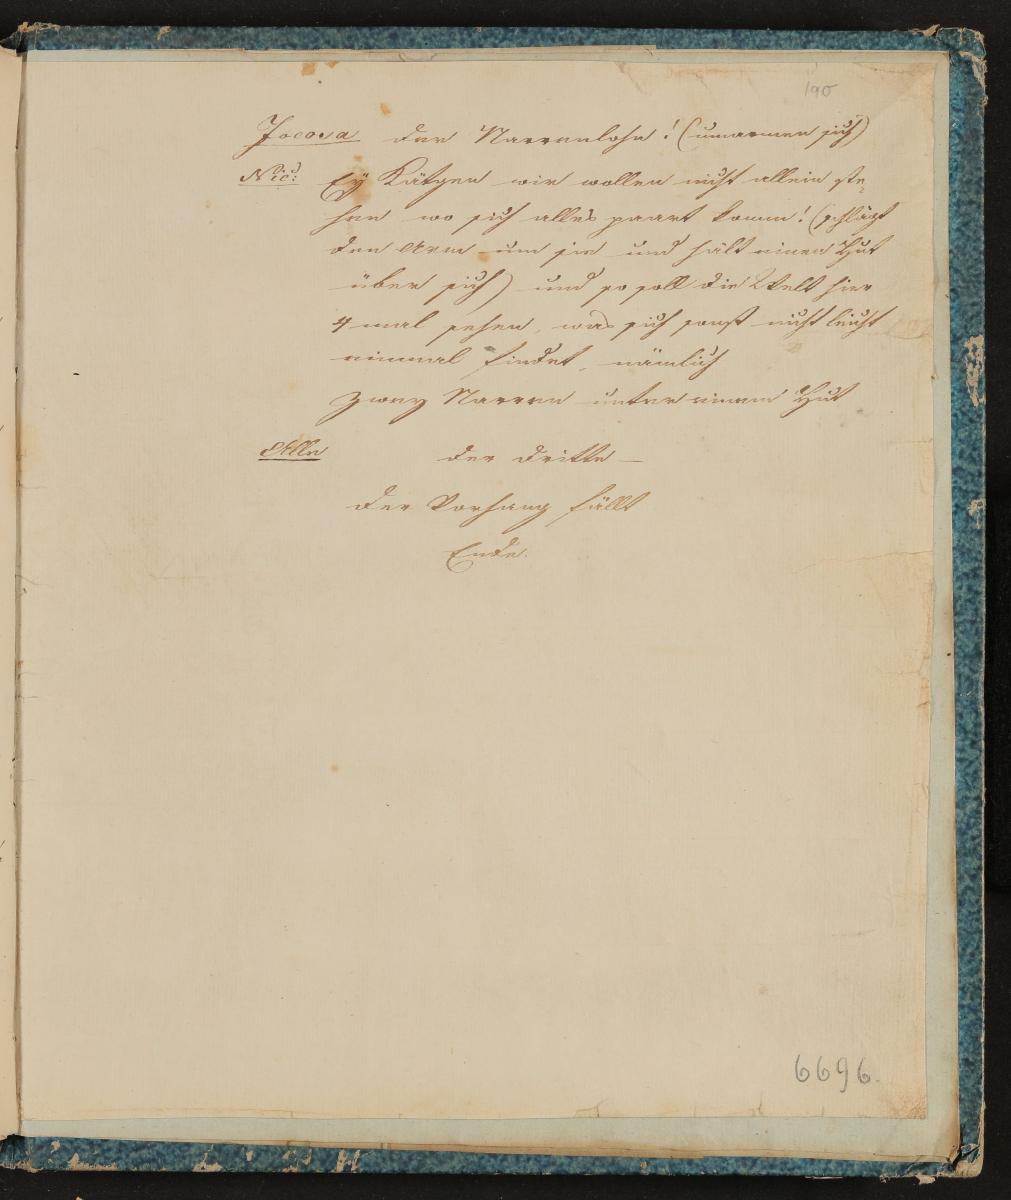 190
Jocosa den Narrenlohn! (umarmen sich)
Nic: Ey Kätgen wir wollen nicht allein ste-
hen wo sich alles paart komm! (schlägt
den Arm um sie und hält einen Hut
über sich) und so soll die Welt hier
4 mal sehen, was sich sonst nicht leicht
einmal findet, nämlich
zwey Narren unter einem Hut
Alle der dritte —
Der Vorhang fällt
Ende.
6696.